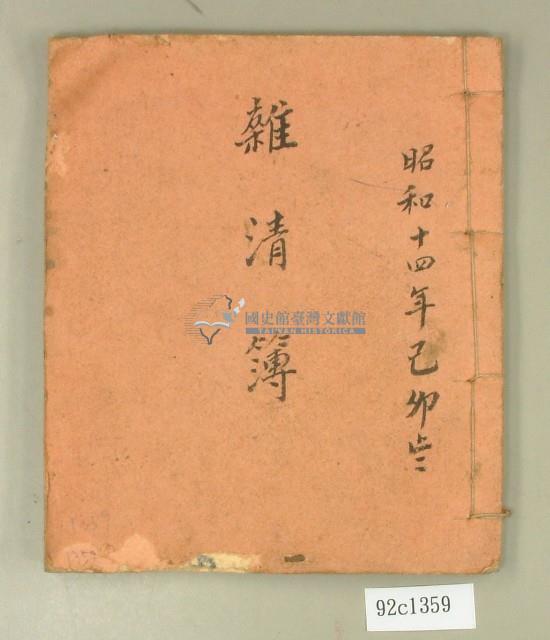 昭和十四年己卯歲
雜清簿
國史館臺灣文獻館
TAIWAN HISTORICA
92c1359